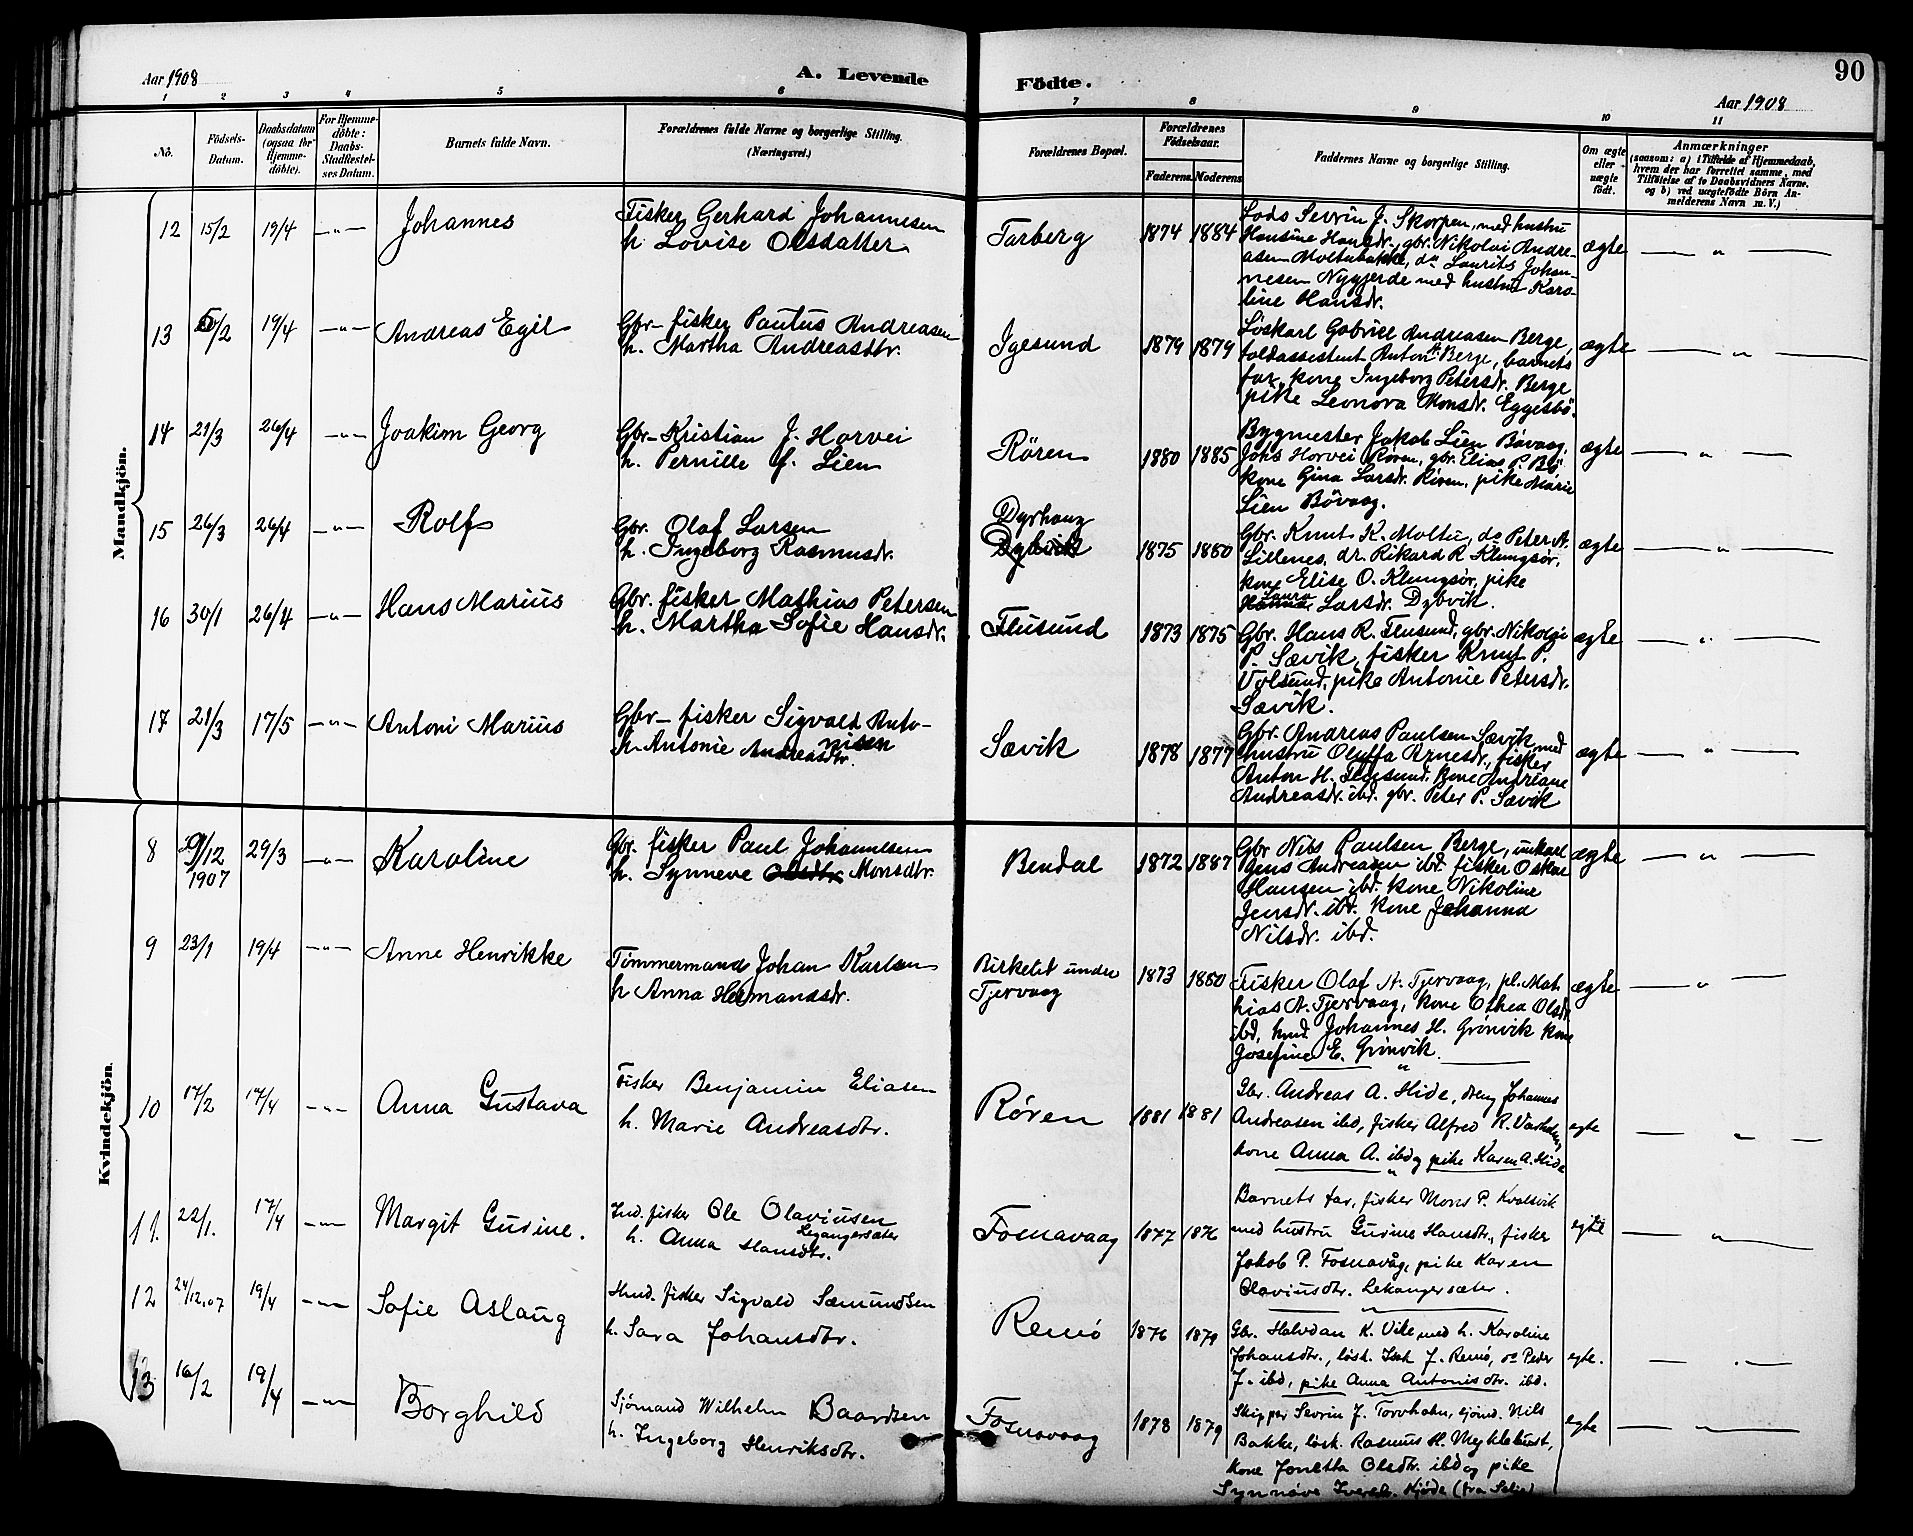 Aar 1908
A. Levende Födte.
90
Aar 1908
1 2 3 4 5 6 7 8 9 10 11
No.
Födsels-Datum.
Daabsdatum (ogsaa for Hjemme-döbte).
For Hjemme-döbte: Daabs-Stadfæstel-ses Datum.
Barnets fulde Navn.
Forældrenes fulde Navne og borgerlige Stilling. (Næringsvei.)
Forældrenes Bopæl.
Forældrenes Födselsaar.
Faderens Moderens
Faddernes Navne og borgerlige Stilling.
Om ægte eller uægte födt.
Anmærkninger
(saasom: a) i Tilfælde af Hjemmedaab,
hvem der har forrettet samme, med
Tilföielse af to Daabsvidners Navne.
og b) ved uægtefödte Börn An-
melderens Navn m. V.)
Mandkjön.
12 15/2 19/4 —"— Johannes
Fisker Gerhard Johannesen
h. Lovise Olsdatter
Tarberg 1874 1884
Lods Sevrin J. Skorpen, med hustru
Hansine Hansdr., gbr. Nikolai Andre-
asen Moltubakke, do Laurits Johan-
nesen Nygjerde med hustru Karo-
line Hansdr.
ægte — " —
13 5/2 19/4 —"— Andreas Egil
Gbr- fisker Paulus Andreasen
h. Martha Andreasdtr.
Igesund 1879 1879
Løskarl Gabriel Andreasen Berge,
toldassistent Anton Berge, barnets
far, kone Ingeborg Petersdr. Berge
pike Leonora Monsdr. Eggesbö.
ægte — " —
14 21/3 26/4 —"— Joakim Georg
Gbr- Kristian J. Horvei
h. Pernille f. Lien
Rören 1880 1885
Bygmester Jakob Lien Bövaag,
Johs Horvei Røren, gbr. Elias P. Bø
kone Gina Larsdr. Røren, pike Marie
Lien Bövaag.
ægte — " —
15 26/3 26/4 —"— Rolf
Gbr. Olaf Larsen
h. Ingeborg Rasmusdr.
Dyrhaug
Dybvik
1875 1880
Gbr. Knut K. Moltu, do Peter A.
Lillenes, dr. Rikard R. Klungsør,
kone Elise O. Klungsør, pike
Laura
Larsdr. Dybvik.
ægte — " —
16 30/1 26/4 —"— Hans Marius
Gbr. fisker Mathias Petersen
h. Martha Sofie Hansdr.
Flusund 1873 1875
Gbr. Hans R. Flusund, gbr. Nikolai
P. Sævik, fisker Knut P.
Volsund, pike Antonie Petersdr.
Sævik.
ægte — " —
17 21/3 17/5 —"— Antoni Marius
Gbr- fisker Sigvald Anto-
nisen
h. Antonie Andreasdtr.
Sævik 1878 1877
Gbr. Andreas Paulsen Sævik med
hustru Oluffa Arnesdr., fisker
Anton H. Flusund, kone Andreane
Andreasdr. ibd. gbr. Peter P. Sævik
ægte — " —
Kvindekjön.
8 29/12 1907 29/3 —"— Karoline
Gbr. fisker Paul Johannesen
h. Synneve Olsdtr. Monsdtr.
Bendal 1872 1887
Gbr Nils Paulsen Berge, unkarl
Jens Andreasen ibd. fisker Oskar
Hansen ibd. kone Nikoline
Jensdr. ibd. kone Johanna
Nilsdr. ibd.
ægte — " —
9 23/1 19/4 —"— Anne Henrikke
Tömmermand Johan Karlsen
h Anna Hermansdr.
Birkelet undre
Tjervaag
1873 1880
Fisker Olaf A. Tjervaag, pl. Mat-
hias A. Tjervaag, kone Othea Olsdr.
ibd, hmd. Johannes H. Grönvik kone
Josefine E. Grönvik.
ægte — " —
10 17/2 17/4 —"— Anna Gustava
Fisker Benjamin Eliasen
h. Marie Andreasdtr.
Røren 1881 1881
Gbr. Andreas A. Hide, dreng Johannes
Andreasen ibd, fisker Alfred R. Varholm,
kone Anna A. ibd og pike Karen A. Hide
egte — " —
11. 22/1. 17/4 —"— Margit Gurine.
Ind. fisker Ole Olaviusen
Legangersæter
h. Anna Hansdtr.
Fosnavaag 1877 1876
Barnets far, fisker Mons P. Kvalsvik
med hustru Gurine Hansdtr., fisker
Jakob P. Fosnavåg, pike Karen
Olaviusdtr. Lekangersæter.
egte — " —
12 24/12.07 19/4 —"— Sofie Aslaug
Hmd. fisker Sigvald Sæmundsen
h. Sara Johansdtr.
Remö 1876 1879
Gbr. Halvdan K. Vike med h. Karoline
Johansdtr., løsk. Isak J. Remö, do Peder
J. ibd, pike Anna Antonisdtr. ibd.
egte. — " —
13 16/2 19/4 —"— Borghild
Sjömand Wilhelm Baardsen
h. Ingeborg Henriksdtr.
Fosnavaag 1878 1879
Skipper Sevrin J. Torvholm, sjömd. Nils
Bakke, løsk. Rasmus H. Myklebust,
kone Jonetta Olsdtr. ibd og pike
Synnöve Kjöde (fra Selje)
egte — " —